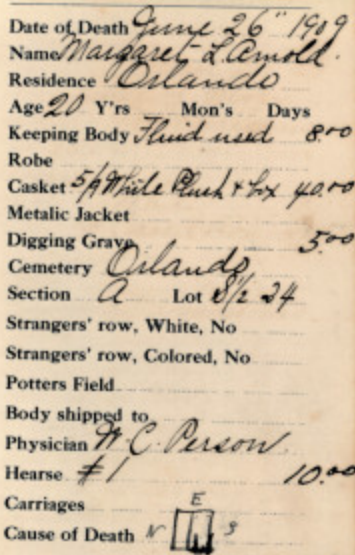 Date of Death June 26" 1909
Name Margaret L. Arnold.
Residence Orlando
Age 20 Y'rs Mon's Days
Keeping Body Fluid used 8.00
Robe
Casket 5/9 White Plush & box 40.00
Metalic Jacket
Digging Grave 5.00
Cemetery Orlando
Section A Lot S 1/2 24
Strangers' row, White, No
Strangers' row, Colored, No
Potters Field
Body shipped to
Physician W. C. Person
Hearse # 1 10.00
Carriages E
Cause of Death N S